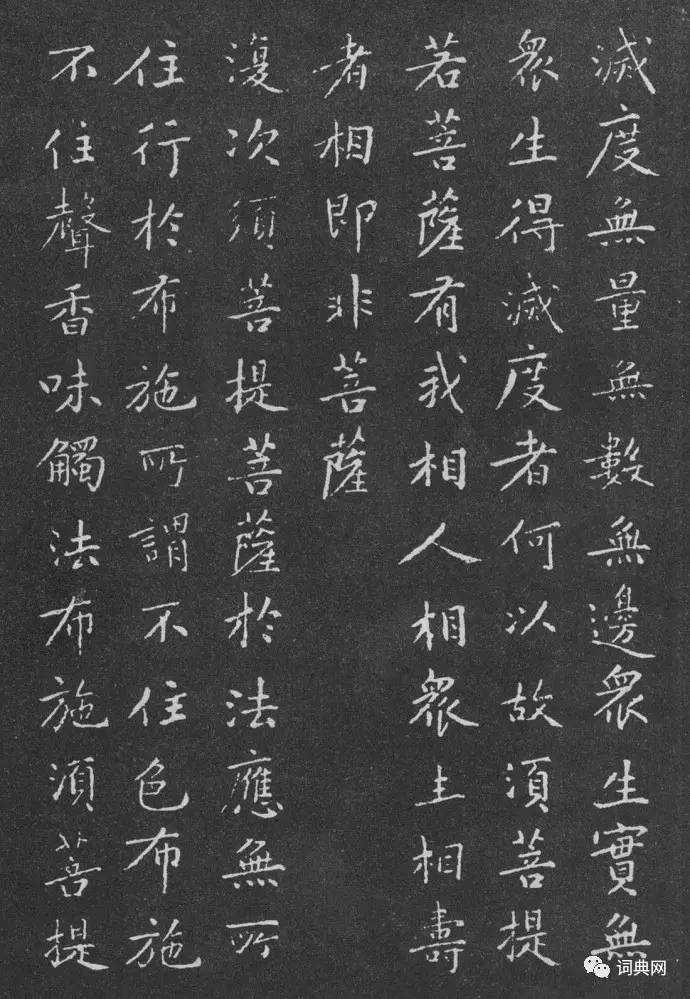 滅度無量無數無邊衆生實無
衆生得滅度者何以故須菩提
若菩薩有我相人相衆生相壽
者相即非菩薩
復次須菩提菩薩於法應無所
住行於布施所謂不住色布施
不住聲香味觸法布施須菩提
词典网